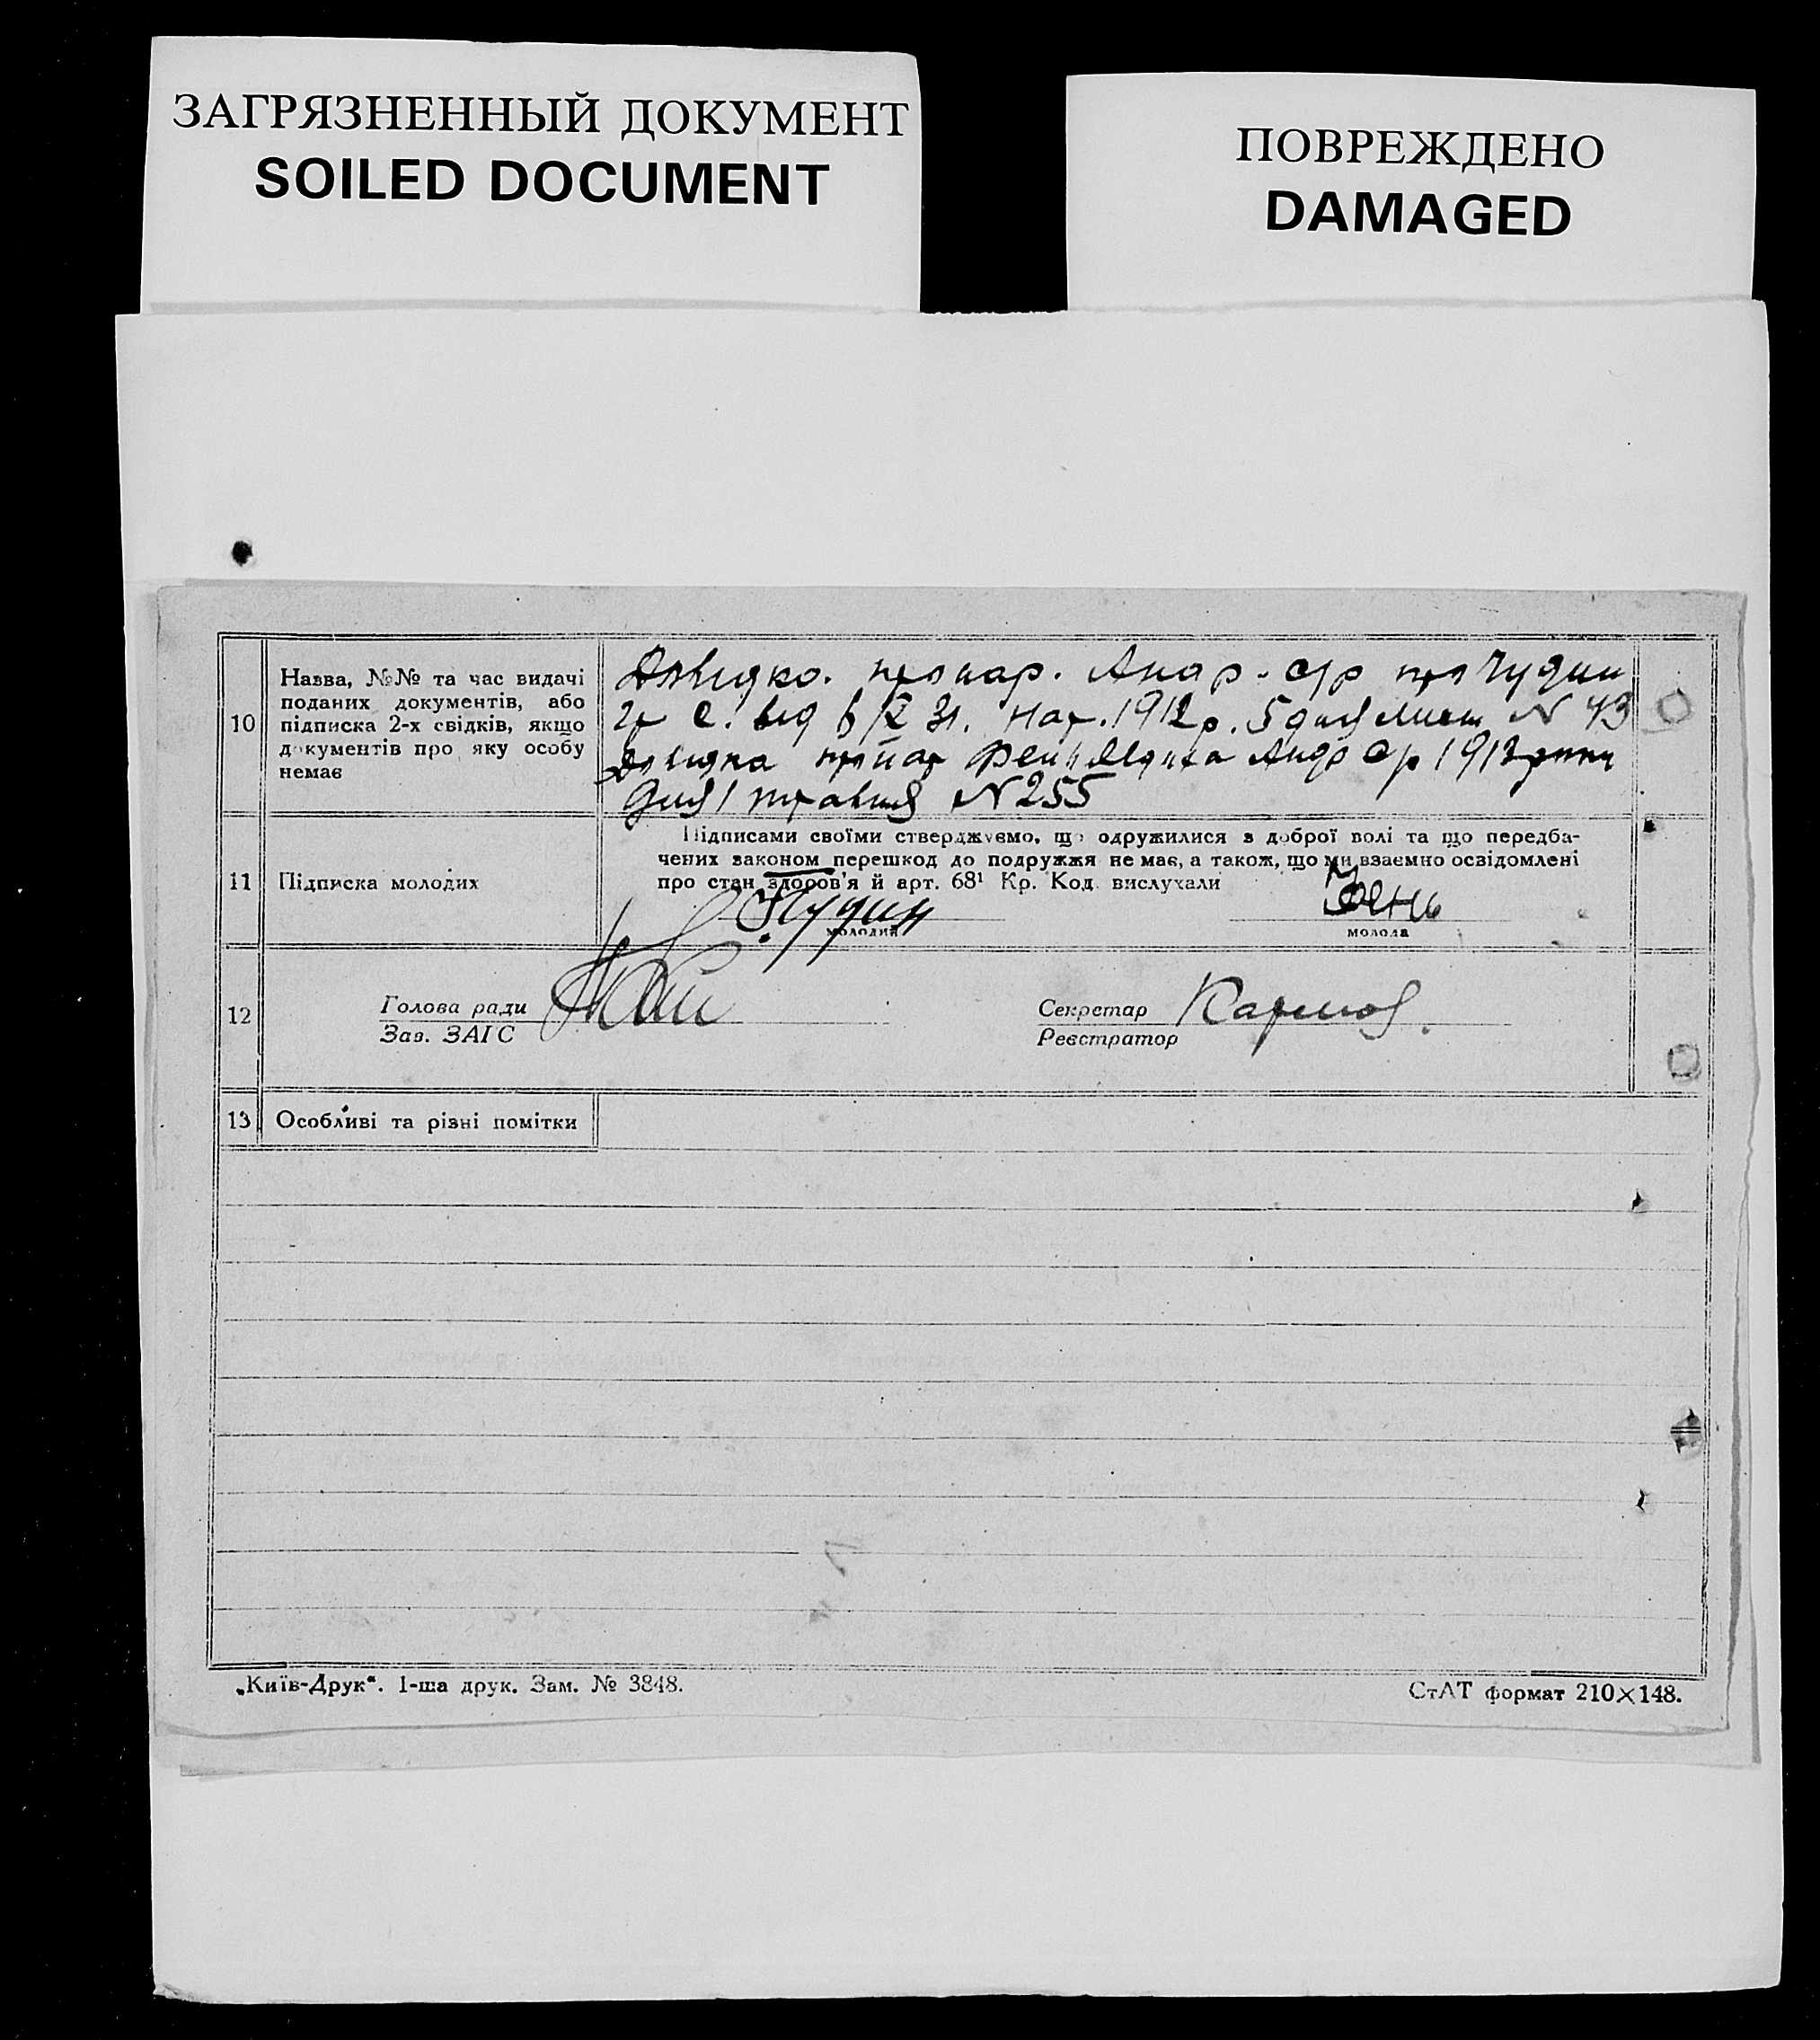 ЗАГРЯЗНЕННЫЙ ДОКУМЕНТ
SOILED DOCUMENT
ПОВРЕЖДЕНО
DAMAGED
10
Назва, №№ та час видачі
поданих документів, або
підписка 2-х свідків, якщо
документів про яку особу
немає
Довідка. про нар. с/р про Чудин
від 31. нар. 1912 р. 5 дня N 43
Довідка про нар с/р 1913 року
дня 1 травня N 255
11
Підписка молодих
Підписами своїми стверджуємо, що одружилися з доброї волі та що передба-
чених законом перешкод до подружжя не має, а також, що ми взаємно освідомлені
про стан здоров'я й арт. 68¹ Кр. Код. вислухали
Чудин
молодий
молода
12
Голова ради
Зав. ЗАГС
Секретар
Реєстратор
13
Особливі та різні помітки
„Київ-Друк“. 1-ша друк. Зам. № 3848.
СтАТ формат 210×148.